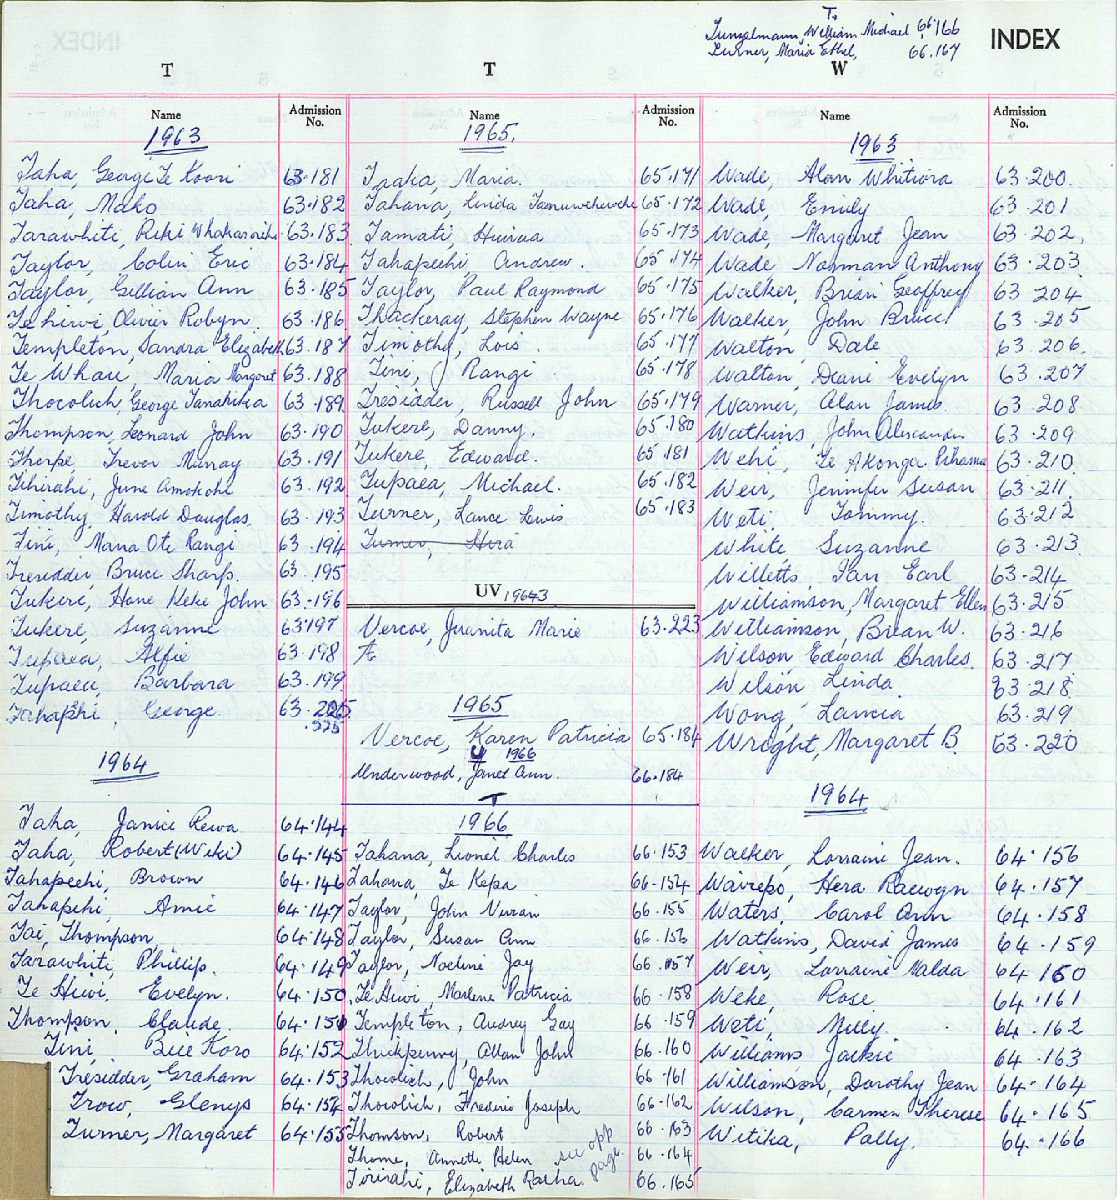 T
Tunzelmann, William Michael 66.166
Turner, Maria Ethel, 66.167
INDEX
T
Name
Admission No.
1963
Taha, George Te Koori 63.181
Taha, Mako 63.182
Tarawhiti, Riki 63.183
Taylor, Colin Eric 63.184
Taylor, Gillian Ann 63.185
Te hiwi, Olivir Robyn. 63.186
Templeton, Sandra Elizabeth 63.187
Te Whau, Maria Margaret 63.188
Thocolich, George 63.189
Thompson, Leonard John 63.190
Thorpe, Trevor Murray 63.191
Tihirahi, June 63.192
Timothy, Harold Douglas 63.193
Tini, Mana Ote Rangi 63.194
Tresidder, Bruce Sharp. 63.195
Tukere, Hone Keke John 63.196
Tukere, Suzanne 63.197
Tupaea, Alfie 63.198
Tupaea, Barbara 63.199
George. 63.225
.225
1964
Taha, Janice Rewa 64.144
Taha, Robert (Wiki) 64.145
Tahapeehi, Brown 64.146
Tahapehi, Amie 64.147
Tai, Thompson, 64.148
Tarawhiti, Phillip. 64.149
Te Hiwi, Evelyn. 64.150
Thompson, Claude. 64.151
Tini, Bill Koro 64.152
Tresidder, Graham 64.153
Trow, Glenys 64.154
Turner, Margaret 64.155
T
Name
Admission No.
1965
Taaka, Maria. 65.171
Tahana, Linda 65.172
Tamati, Huirua 65.173
Tahapeehi, Andrew. 65.174
Taylor, Paul Raymond 65.175
Thackeray, Stephen Wayne 65.176
Timothy, Lois. 65.177
Tini, Rangi 65.178
Tresidder, Russell John 65.179
Tukere, Danny 65.180
Tukere, Edward. 65.181
Tupaea, Michael. 65.182
Turner, Lance Lewis 65.183
Turner, Hira
UV 1963
Vercoe, Juanita Marie 63.223
1965
Vercoe, Karen Patricia 65.184
U 1966
Underwood, Janet Ann. 66.184
T
1966
Tahana, Lionel Charles 66.153
Tahana, Te Kepa 66.154
Taylor, John 66.155
Taylor, Susan Ann 66.156
Taylor, Noeline Jay 66.157
Te Hiwi, Marlene Patricia 66.158
Templeton, Audrey Gay 66.159
Thickpenny, Allan John 66.160
Thocolich, John 66.161
Thocolich, Frederic Joseph 66.162
Thomson, Robert 66.163
Thorne, Annette Helen 66.164
see opp page.
Elizabeth 66.165
W
Name
Admission No.
1963
Wade, Alan Whitiora 63.200.
Wade, Emily 63.201
Wade, Margaret Jean 63.202.
Wade Norman Anthony 63.203
Walker, Brian Geoffrey 63.204
Walker, John Bruce 63.205
Walton, Dale 63.206.
Walton, Diane Evelyn 63.207
Warner, Alan James 63.208
Watkins John Alexander 63.209
Wehi, Te Akonga Pihama 63.210.
Weir, Jennifer Susan 63.211.
Weti Tommy. 63.212
White Suzanne 63.213.
Willetts Ian Earl 63.214
Williamson, Margaret Ellen 63.215
Williamson Brian W. 63.216
Wilson Edward Charles. 63.217
Wilson Linda. 63.218.
Wong, Lancia 63.219
Wright, Margaret B. 63.220
1964
Walker, Lorraine Jean. 64.156
Wairepo, Hera Raewyn 64.157
Waters, Carol Ann 64.158
Watkins, David James 64.159
Weir, Lorraine Nalda 64.160
Weke, Rose 64.161
Weti, Milly. 64.162
Williams Jackie 64.163
Williamson, Dorothy Jean 64.164
Wilson, Carmen Therese 64.165
Witika, Polly. 64.166